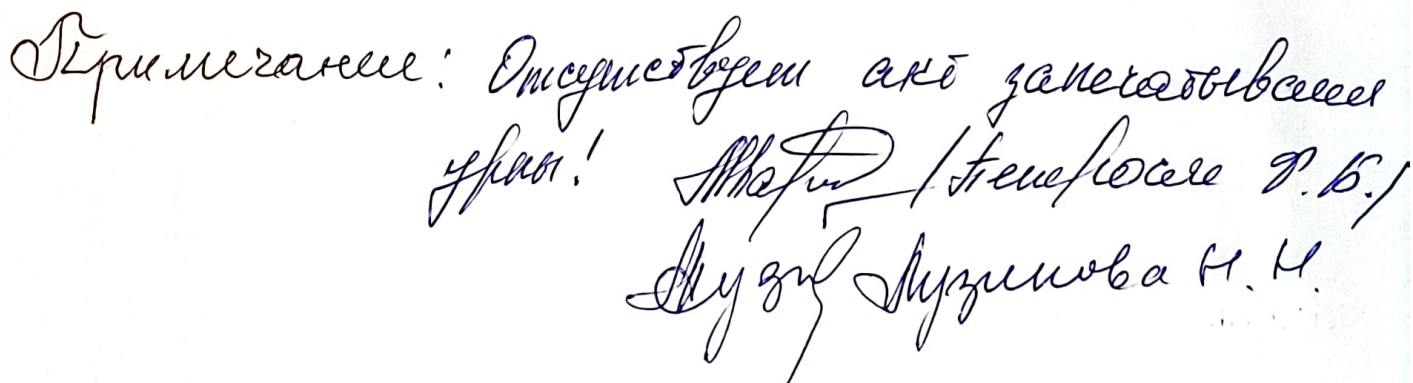 Примечание: Отсутствует акт запечатывания
урны! Ф.Б./
Лузинова Н.Н.